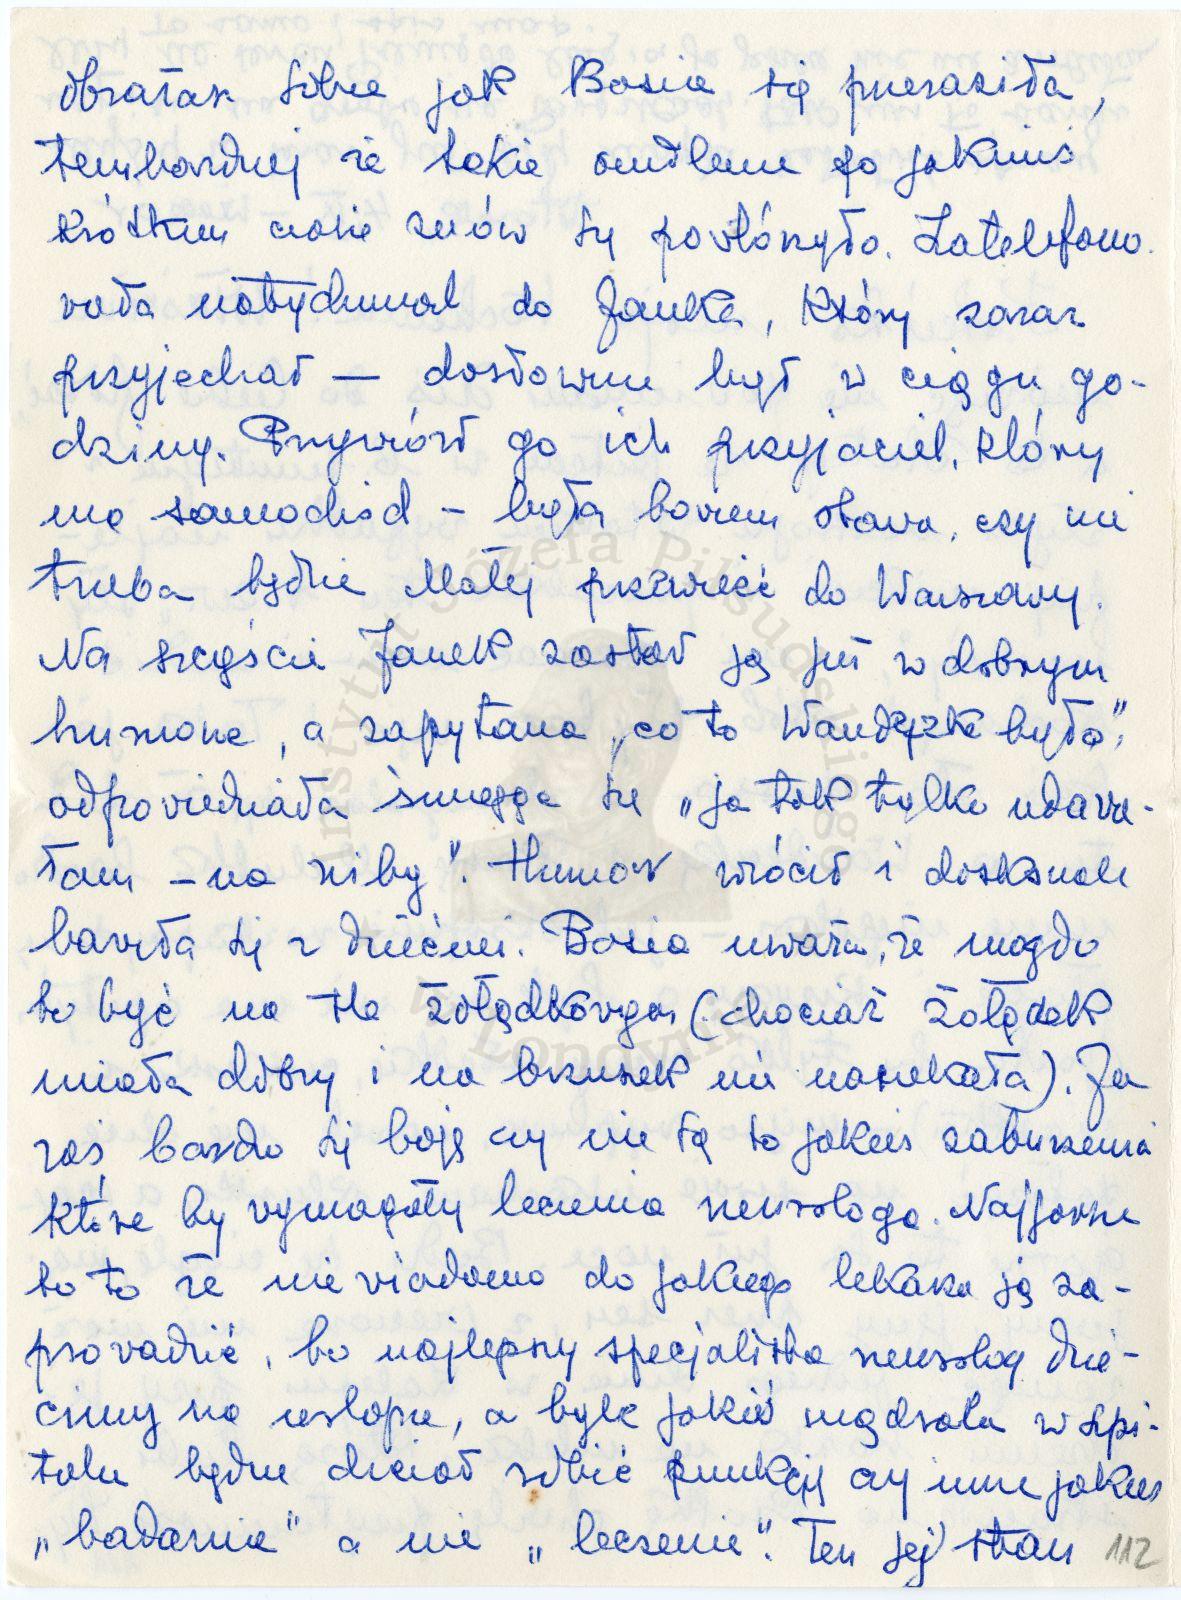 Obrażasz sobie jak Basia się przeraziła,
tembardziej że takie omdlenie po jakimś
krótkim czasie znów się powtórzyło. Zatelefono-
wała natychmiast do Janka, który zaraz
przyjechał — dosłownie był w ciągu go-
dziny. Przywiózł go ich przyjaciel, który
ma samochód – była bowiem obawa, czy nie
trzeba będzie Małej przewieźć do Warszawy.
Na szczęście Janek zastał ją już w dobrym
humorze, a zapytana „co to Wandeczka było"
odpowiedziała śmiejąc się „ja tak tylko udawa-
łam – na niby". Humor wrócił i doskonale
bawiła się z dziećmi. Basia uważa, że mogło
to być na tle żołądkowym (chociaż żołądek
miała dobry i na brzuszek nie narzekała). Ja
zaś bardzo się boję czy nie są to jakieś zaburzenia
które by wymagały leczenia neurologa. Najgorsze
to to że nie wiadomo do jakiego lekarza ją za-
prowadzić, bo najlepszy specjalista neurolog dzie-
cinny na urlopie, a byle jakiś mądrala w szpi-
talu będzie chciał robić punkcję czy inne jakieś
„badanie" a nie „leczenie". Ten jej stan
112
Instytut Józefa Piłsudskiego
w Londynie